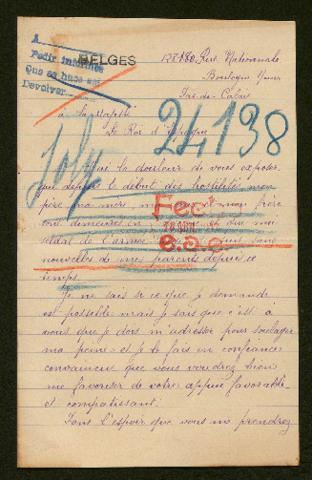 A
Pedir informes
Que se hace así
Devolver
BELGES
137-180, Rue Nationale
Boulogne s/mer
Pas-de-Calais
à sa Majesté
Le Roi d'Espagne
24138
J'ai la douleur de vous exposer
que depuis le début des hostilités mon
père, ma mère, et mon frère
tous demeurés en
Fec
nouvelles de mes parents depuis ce
temps.
Je ne sais si ce que je demande
est possible mais je sais que c'est à
vous que je dois m'adresser pour soulager
ma peine et je le fais en confiance
convaincue que vous voudrez bien
me favoriser de votre appui favorable
et compatissant.
Dans l'espoir que vous me prendrez